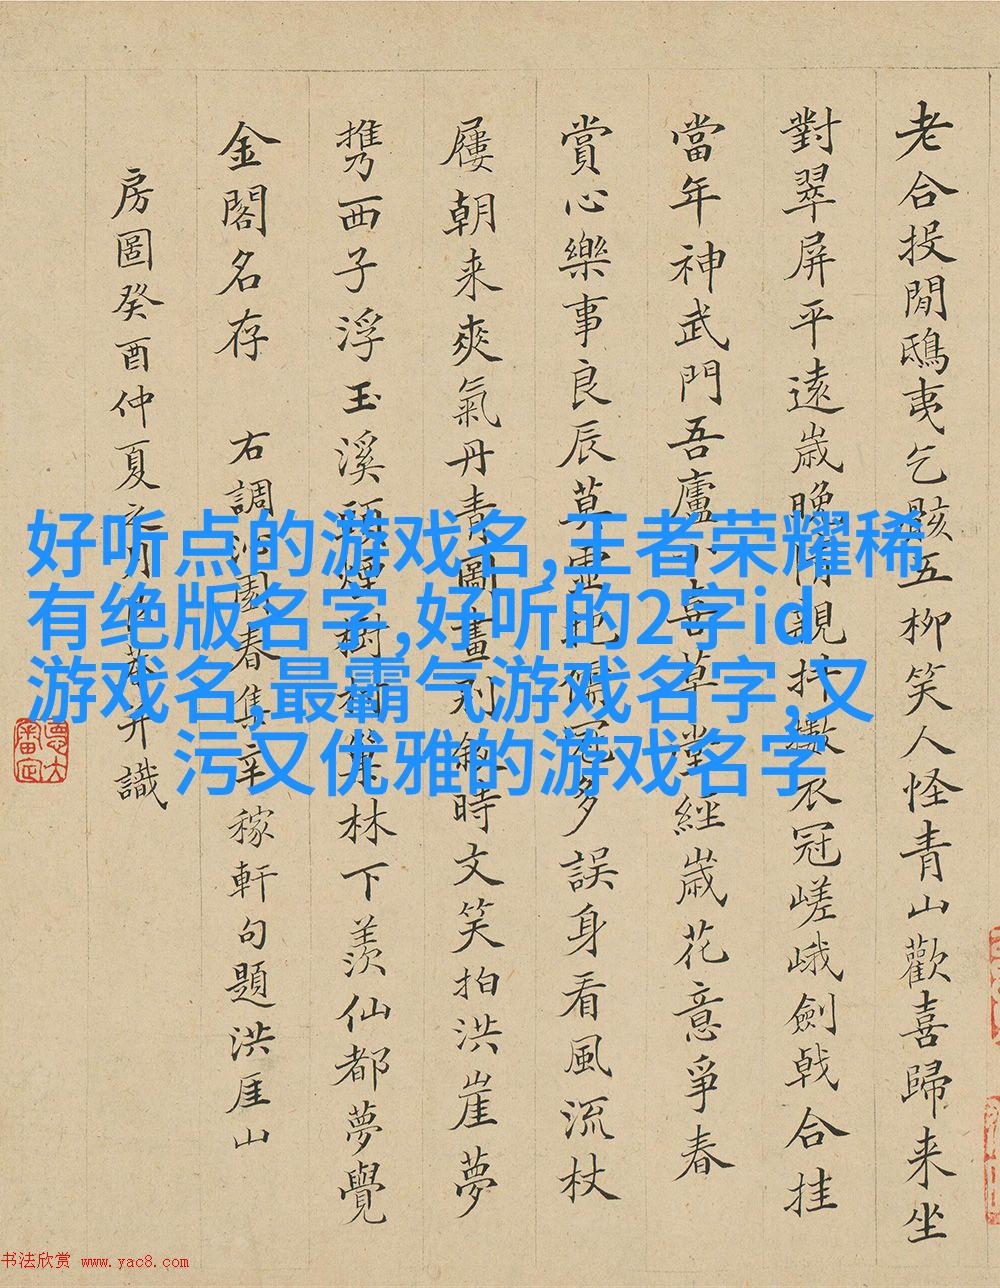 老合投閒鴟夷乞骸五柳笑人怪青山歡喜歸来坐
對翠屏平遠歳晚情親抖擻衣冠嵯峨劍戟合挂
當年神武門吾廬小喜草堂經歳花意爭春
賞心樂事良辰莫靈地儒冠多誤身看風流杖
屨朝来爽氣丹青圖畫列敘時文笑拍洪崖夢
携西子浮玉溪頭煙樹林下羡仙都夢覺
金閣名存 右調沁園春集辛稼軒句題洪厓山
房圖癸酉仲夏之月 識
好听点的游戏名,王者荣耀稀
有绝版名字,好听的2字id
游戏名,最霸气游戏名字,又
污又优雅的游戏名字
书法欣赏 www.yac8.com